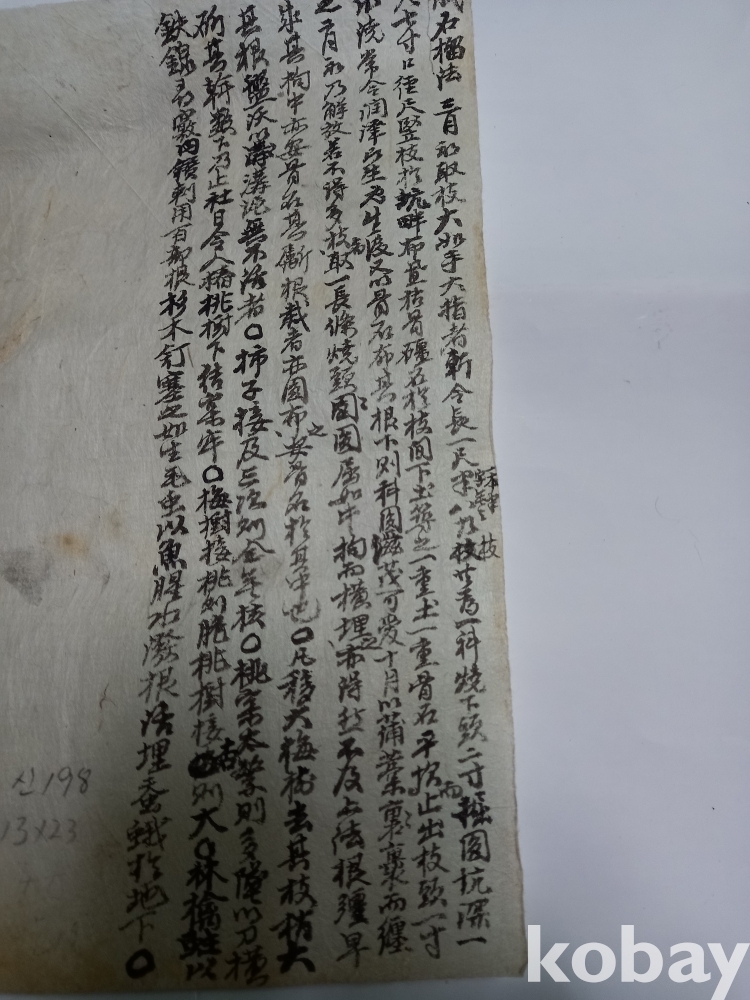 石榴法 三月初取枝大如手大指者斬令長一尺半八九枝共爲一科燒下頭二寸掘圓坑深一
尺七寸口徑尺竪枝於坑畔布置枯骨礓石於枝間下土築之一重土一重骨石平坎止出枝頭一寸
水澆常令潤澤旣生又以骨石布其根下則科圓滋茂可愛十月以蒲藁裹而纏
之二月初乃解放若不得多枝取一長條燒頭圓屈如牛拘而橫埋之亦得然不及上法根彊早
成其拘中亦安骨石其斸根栽者亦圓布之安骨石於其中也〇凡移大梅樹去其枝梢大
其根盤沃以溝泥無不活者〇柿子接及三次則全無核〇桃實太繁則多墜以刀橫
斫其幹數下乃止社日令人樁桃樹下結實牢〇梅樹接桃則脆桃樹接杏則大〇林檎蛀以
鉄線尋竅內鑽刺用百部根杉木釘塞之如生毛虫以魚腥水潑根活埋蚕蛾於地下〇
신198
13x23
kobay